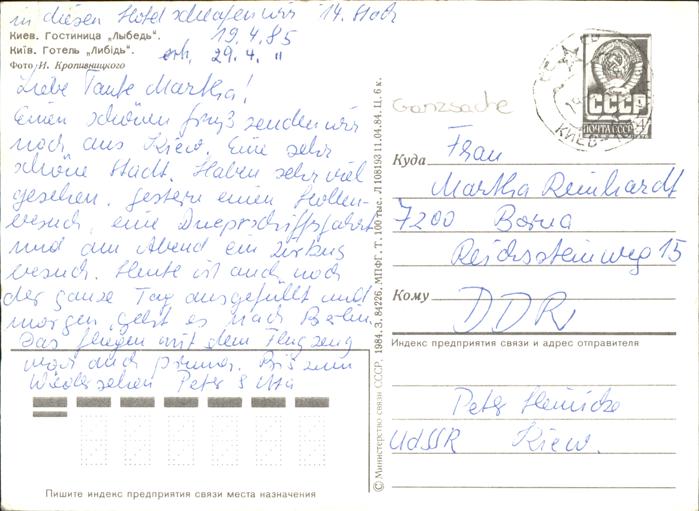 in diesen Hotel schlafen wir 14. Stock
Киев. Гостиница „Лыбедь“.
19.4.85
Київ. Готель „Либідь“.
erh. 29.4. "
Фото И. Кропивницкого
Liebe Tante Martha!
Einen schönen Gruß senden wir
noch aus Kiew. Eine sehr
schöne Stadt. Haben sehr viel
gesehen, gestern einen Höhlen-
besuch, eine Dneprschiffsfahrt
und am Abend ein Zirkus
besuch. Heute ist auch noch
der ganze Tag ausgefüllt und
morgen geht es nach Berlin.
Das fliegen mit dem Flugzeug
war auch prima. Bis zum
Wiedersehen Peter &
Пишите индекс предприятия связи места назначения
© Министерство связи СССР. 1984. З. 84226. МПФГ. Т. 100 тыс. Л 10819311.04.84. Ц. 6 к.
Ganzsache
СССР
ПОЧТА СССР
КИЕВ
Куда
Frau
Martha Reinhardt
7200 Borna
Reichssteinweg 15
Кому
DDR
Индекс предприятия связи и адрес отправителя
Peter Heinicke
UdSSR Kiew.